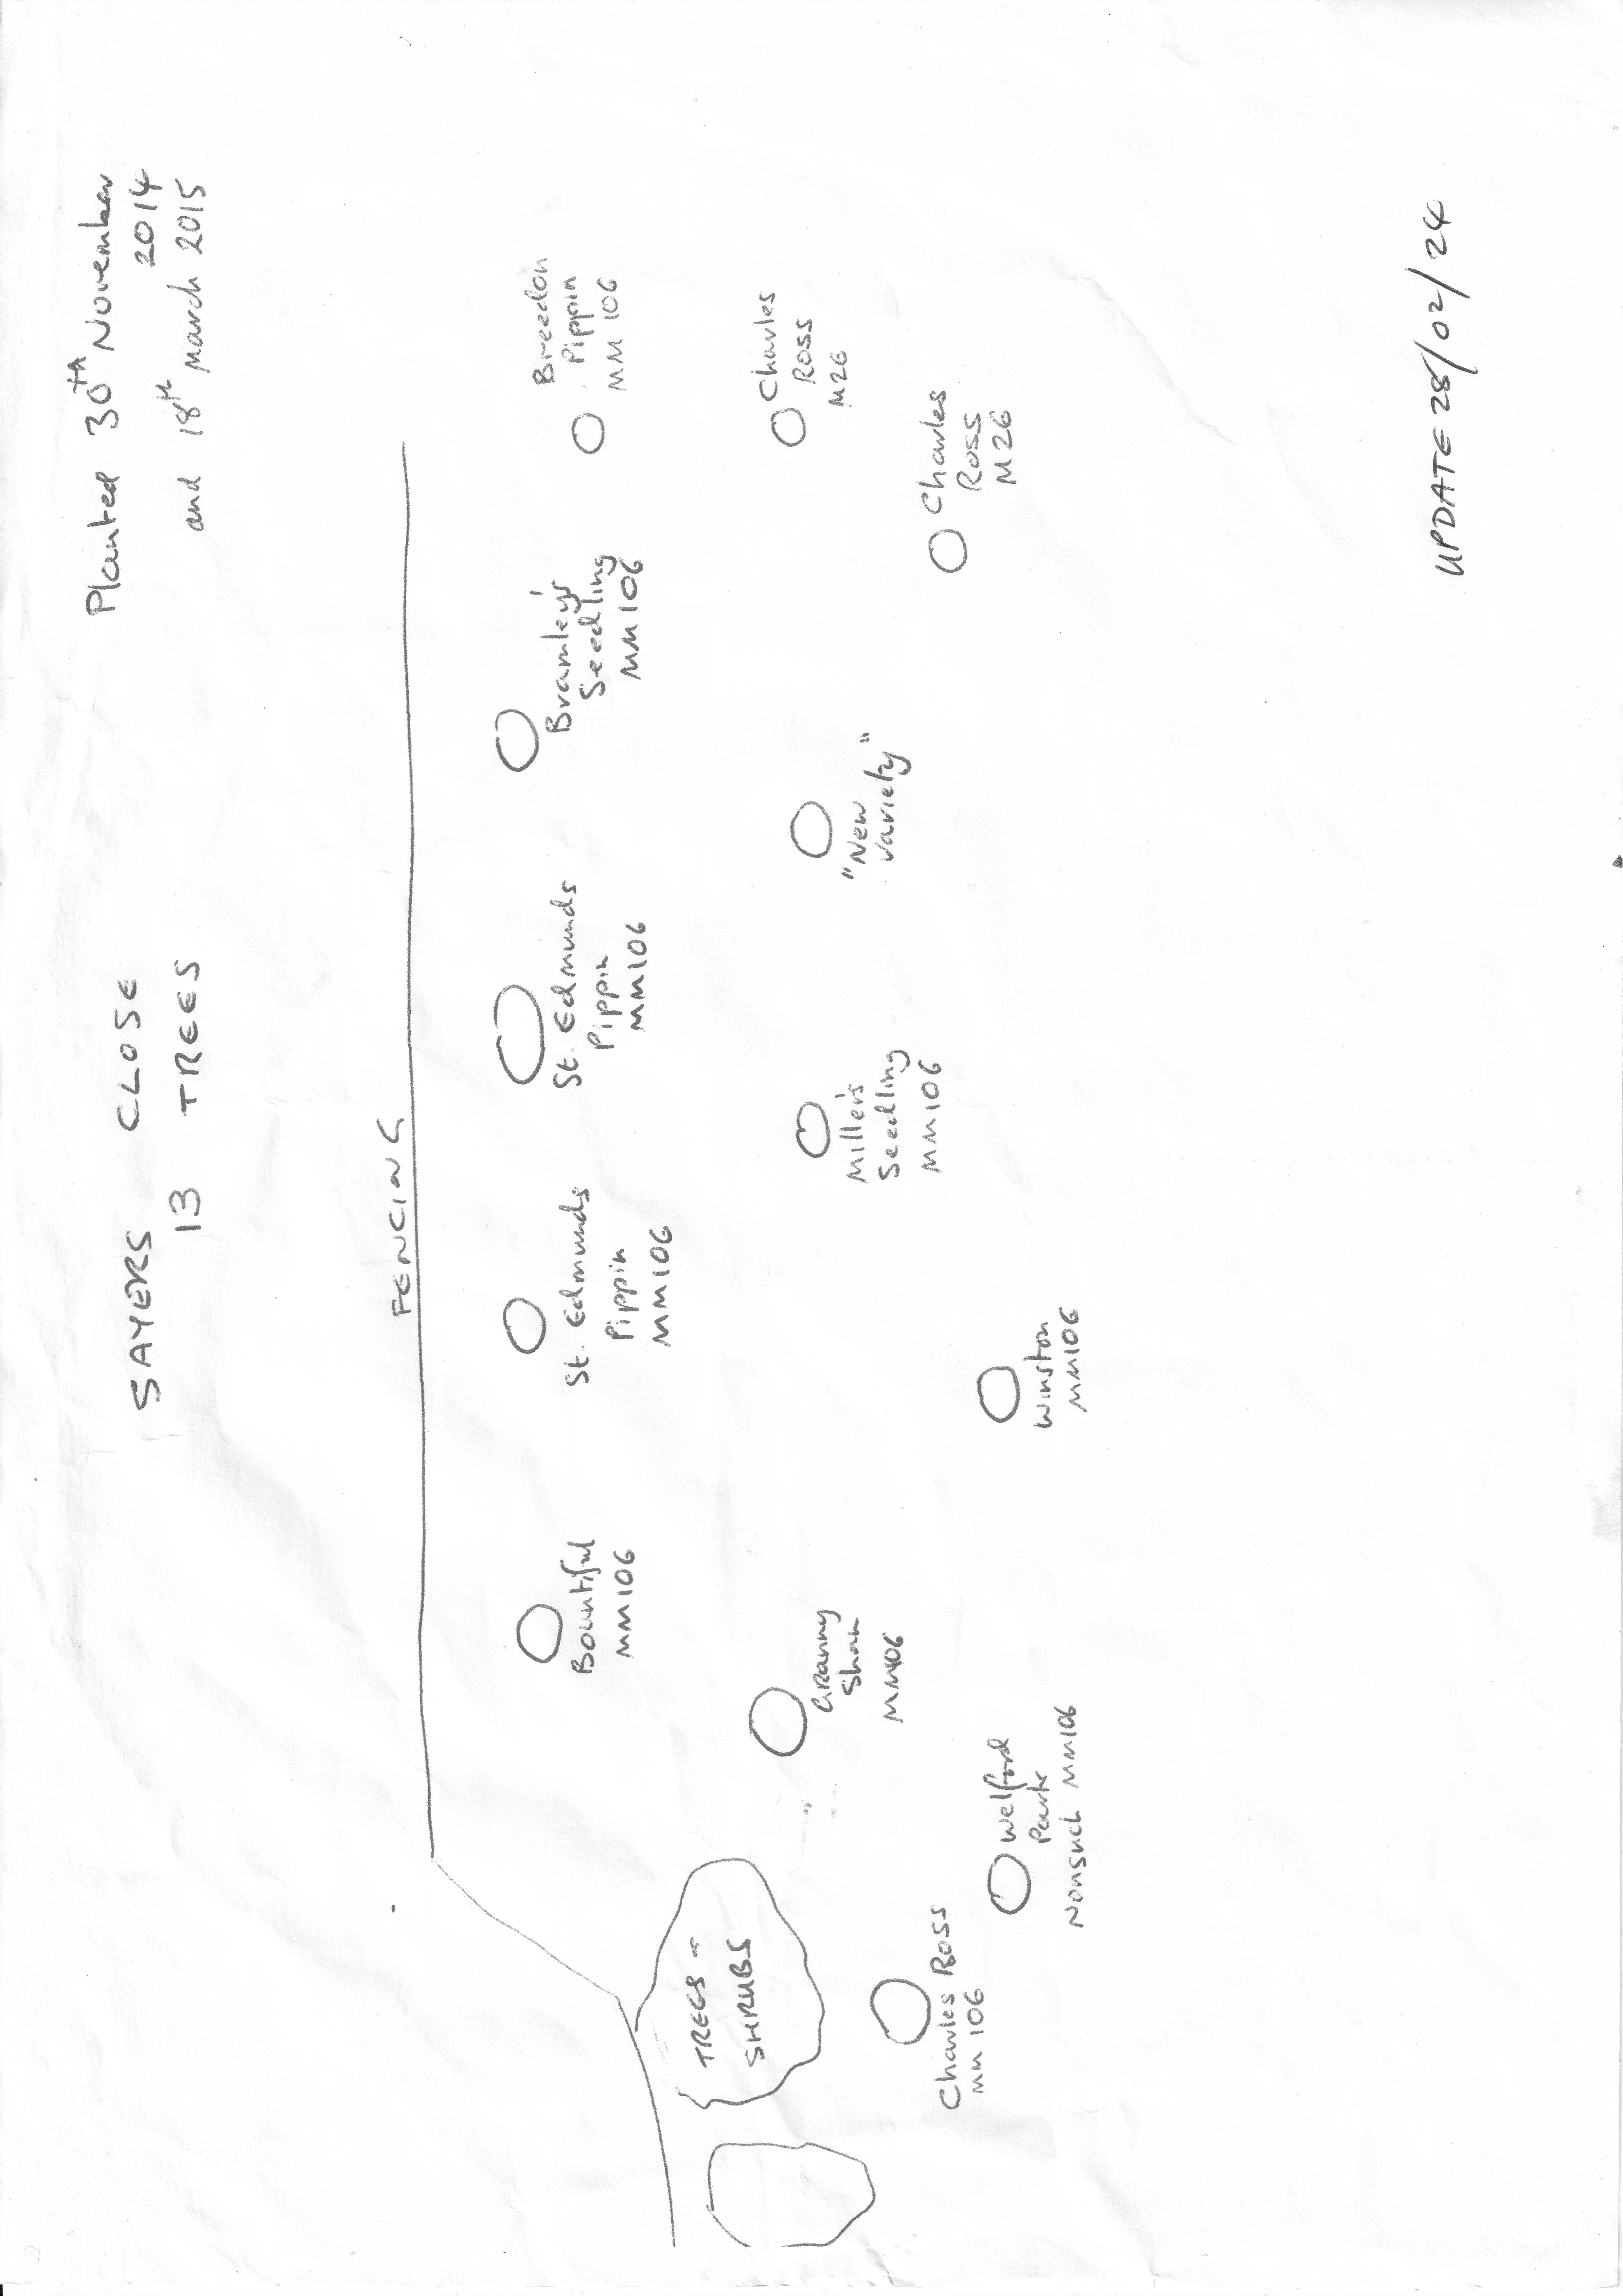 SAYERS CLOSE
13 TREES
Planted 30th November
2014
and 18th March 2015
FENCING
Bountiful
MM106
St. Edmunds
Pippin
MM106
St. Edmunds
Pippin
MM106
Bramley's
Seedling
MM106
Breedon
Pippin
MM 106
TREES +
SHRUBS
Granny
MM106
Miller's
Seedling
MM106
"New
Variety"
Charles
Ross
M26
Charles Ross
MM 106
Welford
Park
Nonsuch MM106
Winston
MM106
Charles
Ross
M26
UPDATE 28/02/24